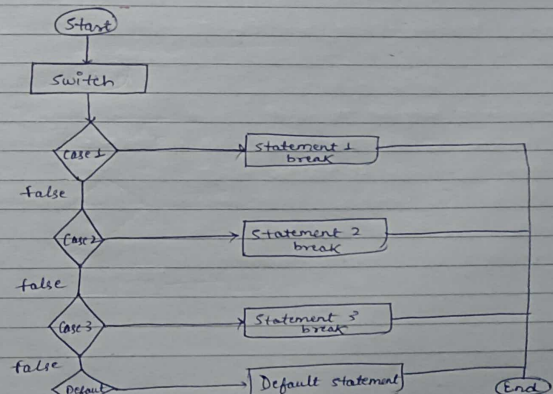 Start
Switch
Case 1
Statement 1
break
false
Case 2
Statement 2
break
false
Case 3
Statement 3
break
false
Defaut
Default statement
End